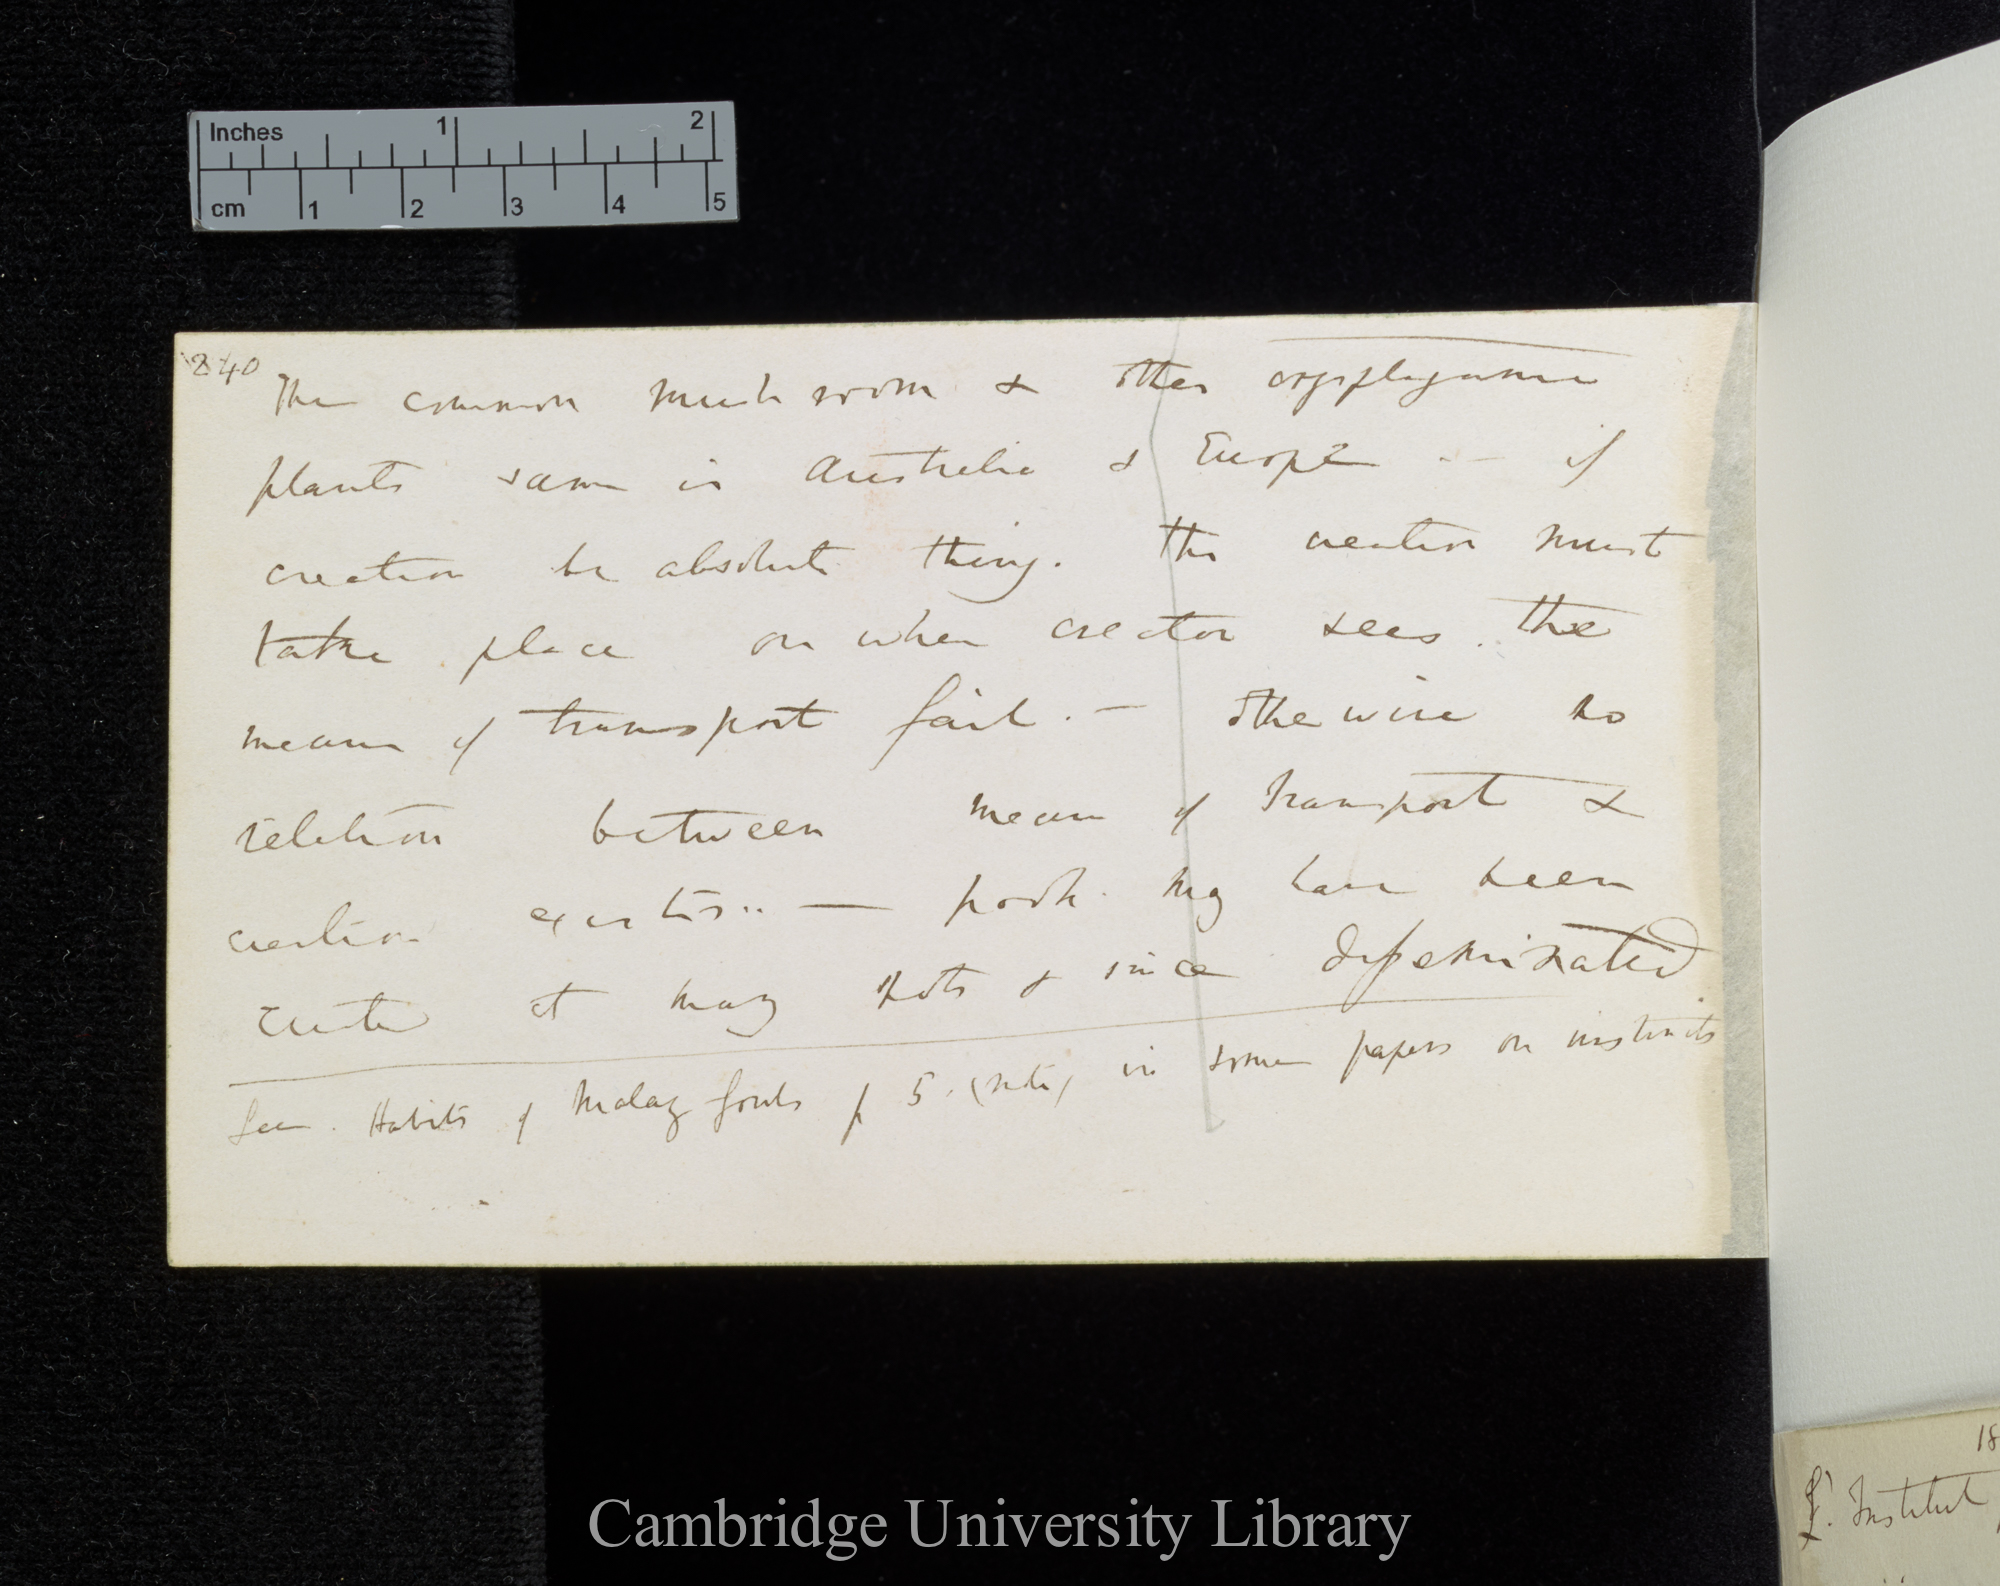 Inches 1 2
cm 1 2 3 4 5
240
The common mushroom & other cryptogamic
plants same in Australia & Europe — if
creation be absolute thing. the creation must
take place on when creator sees the
means of transport fail. — otherwise no
relation between means of transport &
creation exists.. — pool. may have been
created at many spots & since disseminated
See. Habits of Malay fowls p 5. (note) in some papers on instincts
18
L'Institut
Cambridge University Library